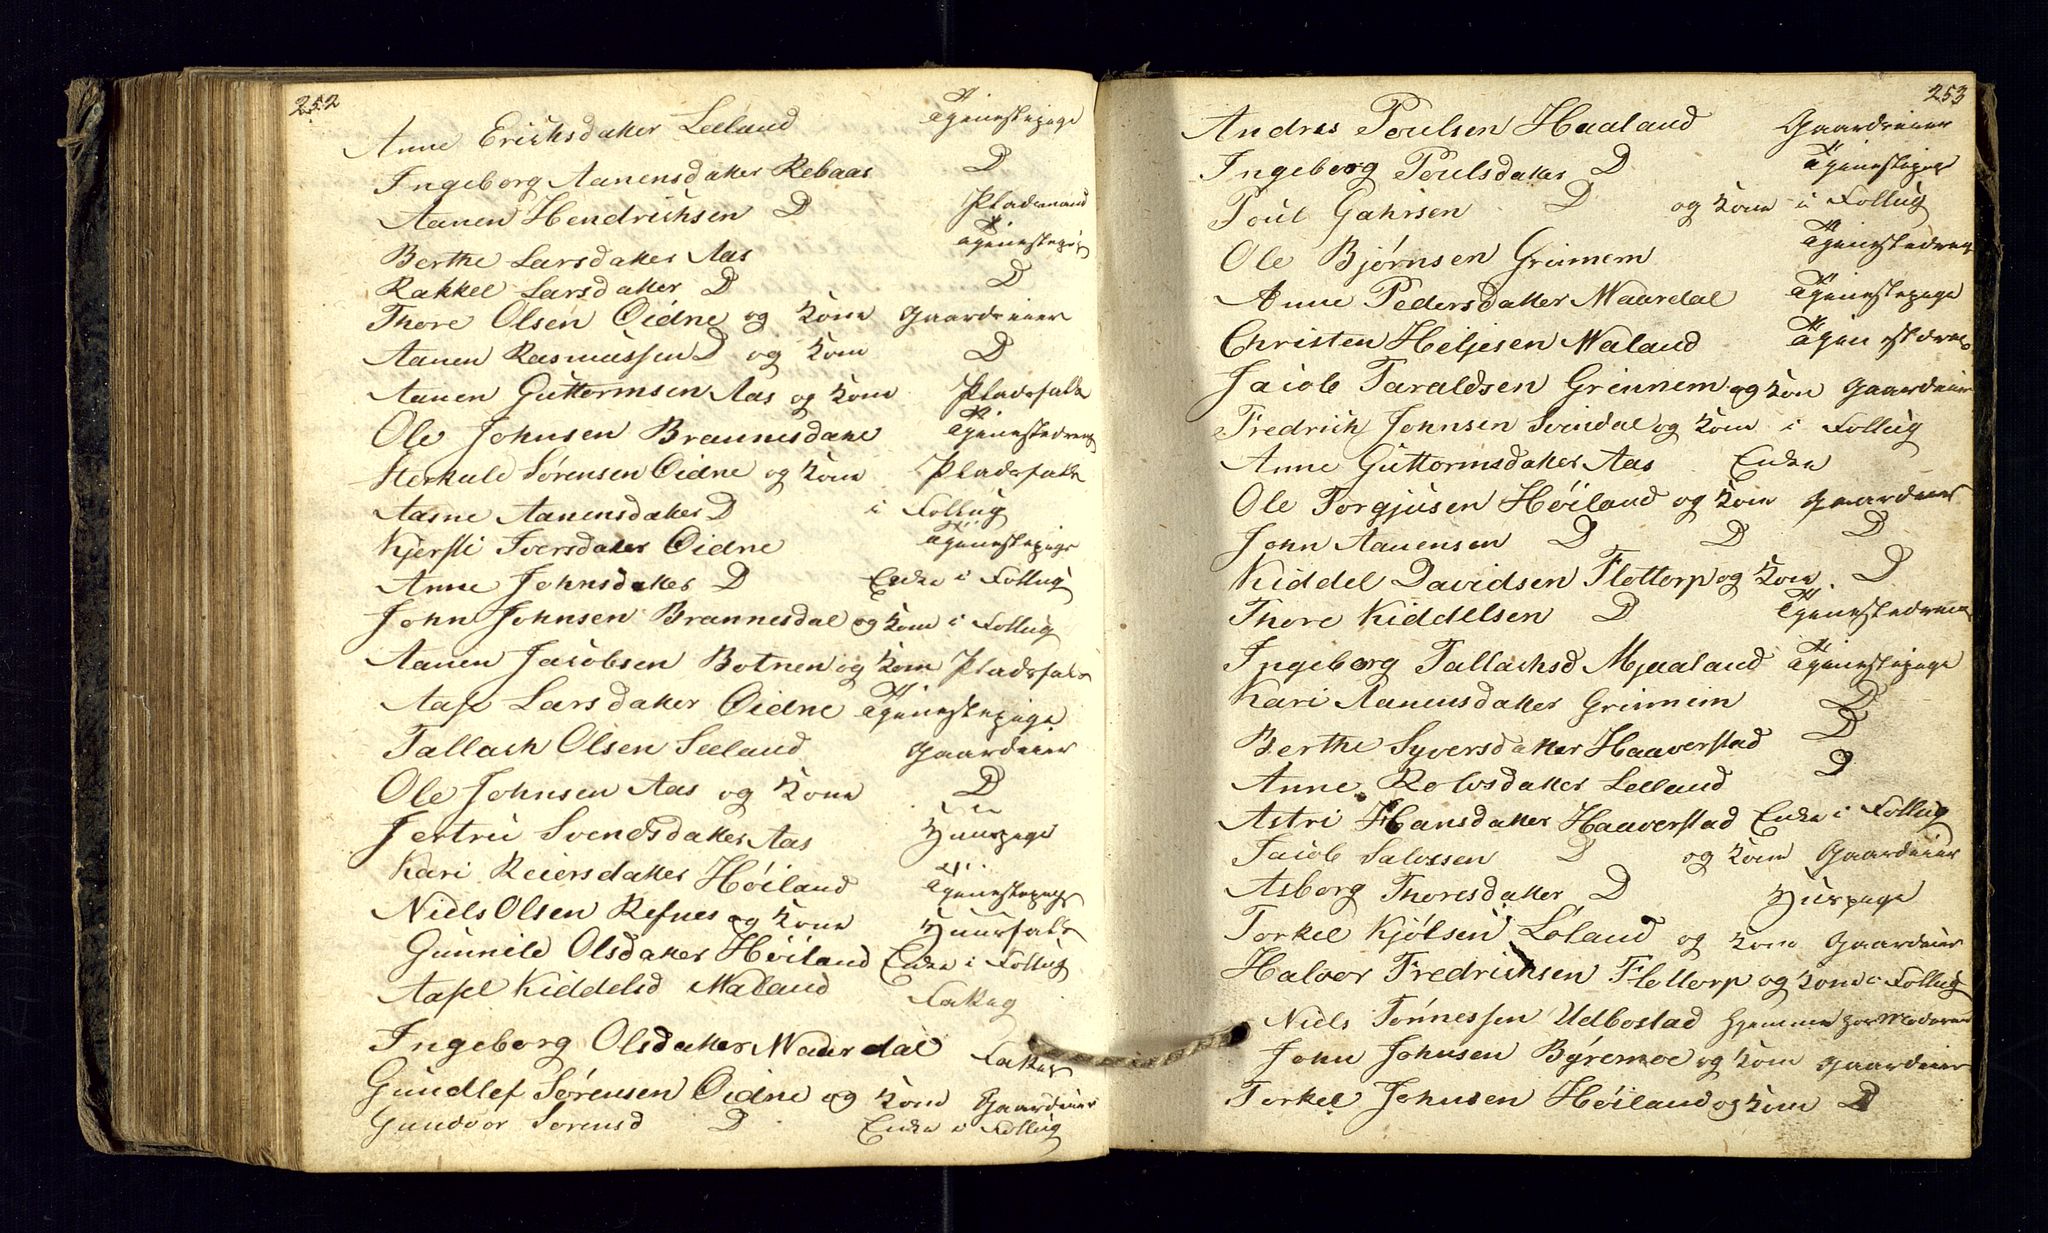 252
Anne Erichsdatter Leeland Tjenestepige
Ingeborg Aanensdatter Rebaas D
Aanen Hendrichsen D Pladsmand
Berthe Larsdatter Aas Tjenestepige
Rakkel Larsdatter D D
Thore Olsen Øidne og Kone Gaardeier
Aanen Rasmussen D og Kone D
Aanen Guttormsen Aas og Kone Pladsfolk
Ole Johnsen Brannesdahl Tjenestedreng
Sørensen Øidne og Kone Pladsfolk
Aasne Aanensdatter D i Follug
Kjersti Iversdatter Øidne Tjenestepige
Anne Johnsdatter D Enke i Follug
John Johnsen Brannesdal og Kone i Follug
Aanen Jacobsen Botnen og Kone Pladsfolk
Aase Larsdatter Øidne Tjenestepige
Tallach Olsen Leeland Gaardeier
Ole Johnsen Aas og Kone D
Jertru Svendsdatter Aas Huuspige
Kari Reiersdatter Høiland Tjenestepige
Niels Olsen Refnes og Kone Huusfolk
Gunnile Olsdatter Høiland Enke i Follug
Aasel Kiddelsd Maland Fattig
Ingeborg Olsdatter Maurdal Fattig
Gundlef Sørensen Øidne og Kone Gaardeier
Gundvor Sorensd D Enke i Follug
253
Andres Poulsen Haaland Gaardeier
Ingeborg Poulsdatter D Tjenestepige
Poul Gahrsen D og Kone i Follug
Ole Bjørnsen Grinnem Tjenestedreng
Anne Pedersdatter Maurdal Tjenestepige
Christen Heljesen Maland Tjenestedreng
Jacob Taraldsen Grinnem og Kone Gaardeier
Fredrich Johnsen Svindal og Kone i Follug
Anne Guttormsdatter Aas Enke
Ole Torgjusen Høiland og Kone Gaardeier
John Aanensen D D D
Kiddel Davidsen Flottorp og Kone D
Thore Kiddelsen D Tjenestedreng
Ingeborg Tallachsd Mjaaland Tjenestepige
Kari Aanensdatter Grinnem D
Berthe Syversdatter Haaverstad D
Anne Rolvsdatter Leeland D
Astri Hansdatter Haaverstad Enke i Follug
Jacob Salvesen D og Kone Gaardeier
Asborg Thoresdatter D Huspige
Torkel Kjølsen Løland og Kone Gaardeier
Halvor Fredrichsen Flottorp og Kone i Follug
Niels Tønnessen Udbostad hjemme hos Moderen
John Johnsen Byremoe og Kone Gaardeier
Torkel Johnsen Høiland og Kone D